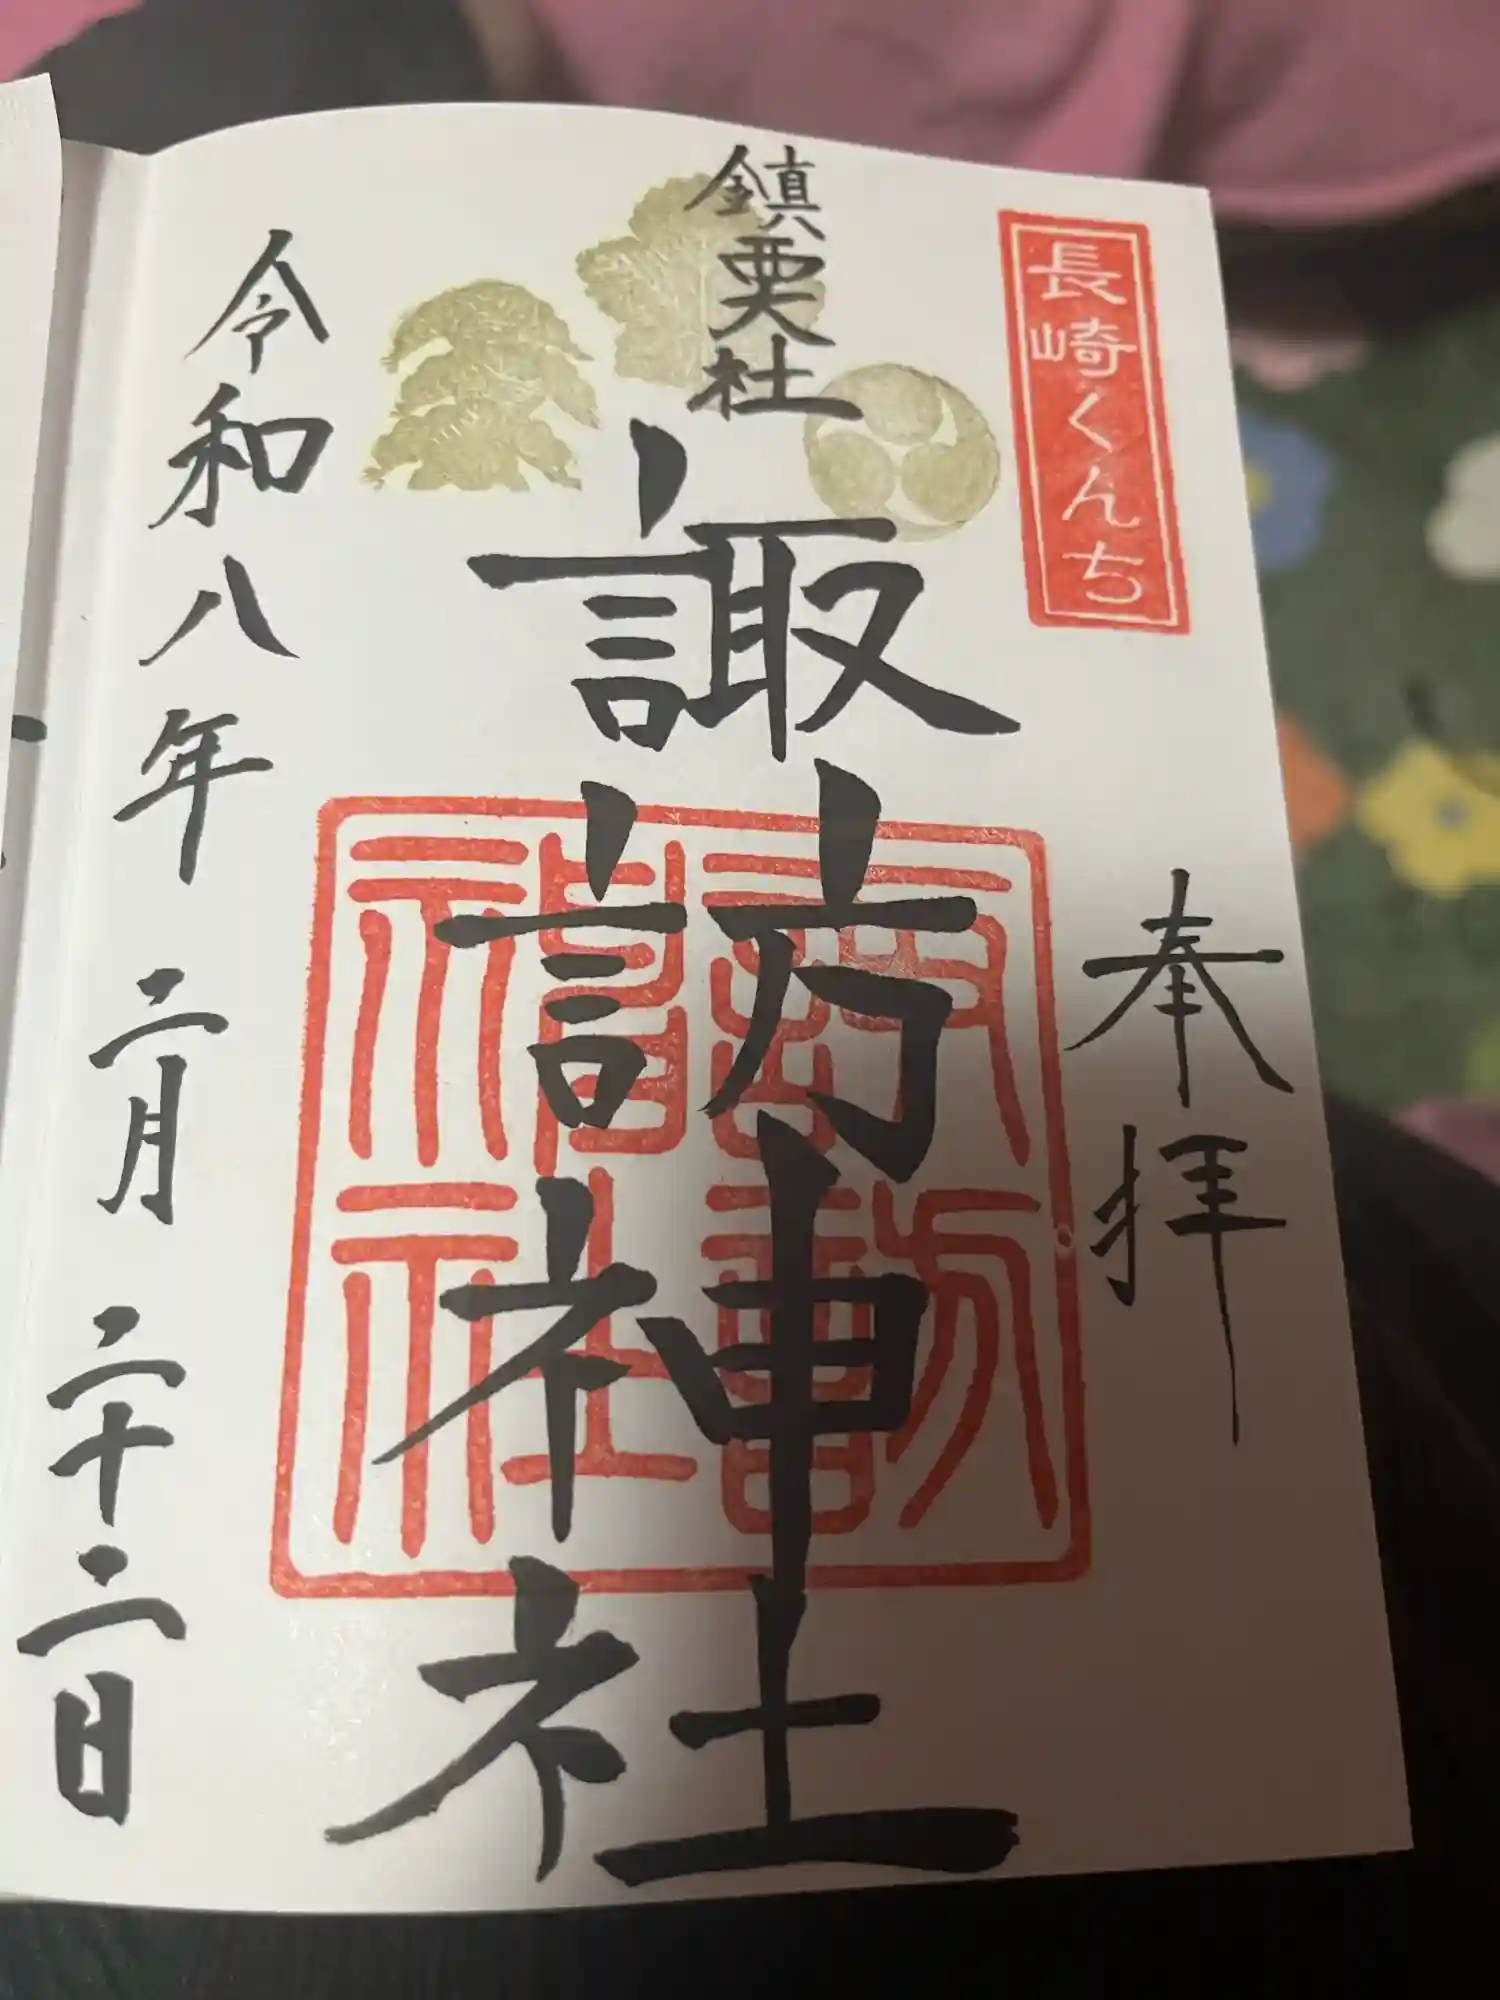 長崎くんち
奉拝
鎮西大社
諏訪神社
諏訪神社
令和八年二月二十二日